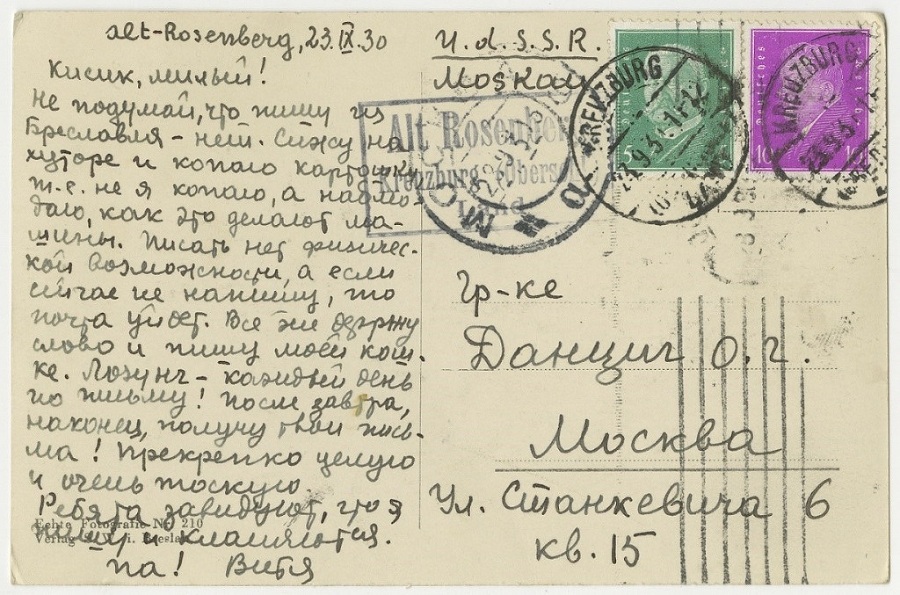 Alt-Rosenberg, 23.IX.30
Кисик, милый!
Не подумай, что пишу из
Бреславля - нет. Сижу на
хуторе и копаю картошку
т.е. не я копаю, а наблю-
даю, как это делают ма-
шины. Писать нет физичес-
кой возможности, а если
сейчас не напишу, то
почта уйдет. Все же держу
слово и пишу моей кош-
ке. Лозунг - каждый день
по письму! После завтра,
наконец, получу твои пись-
ма! Прекрепко целую
и очень тоскую
Ребята завидуют, что я
пишу и кланяются.
па! Витя
Echte Fotografie Nr. 210
Verlag i. Breslau
U.d.S.S.R.
Moskau
Alt Rosenberg
Kreuzburg Obersch
KREUZBURG
KREUZBURG
Гр-ке
Данциг О.Г.
Москва
Ул. Станкевича 6
кв. 15